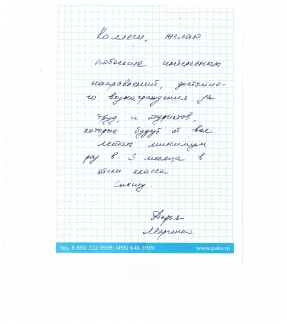 Коллеги, желаю
побольше интересных
направлений, достойно-
го вознаграждения за
труд, и туристов,
которые будут от вас
летать минимум
раз в 3 месяца в
отели класса
Дарья
тел. 8 800 222 0939; (495) 646 3939
www.paks.ru